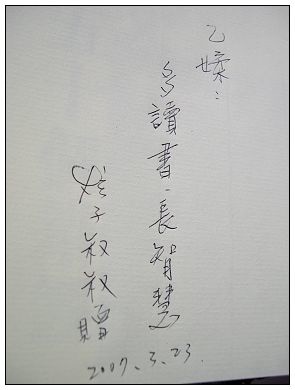 乙嫀：
多讀書、長智慧
孩子叔叔贈
2007.3.23.